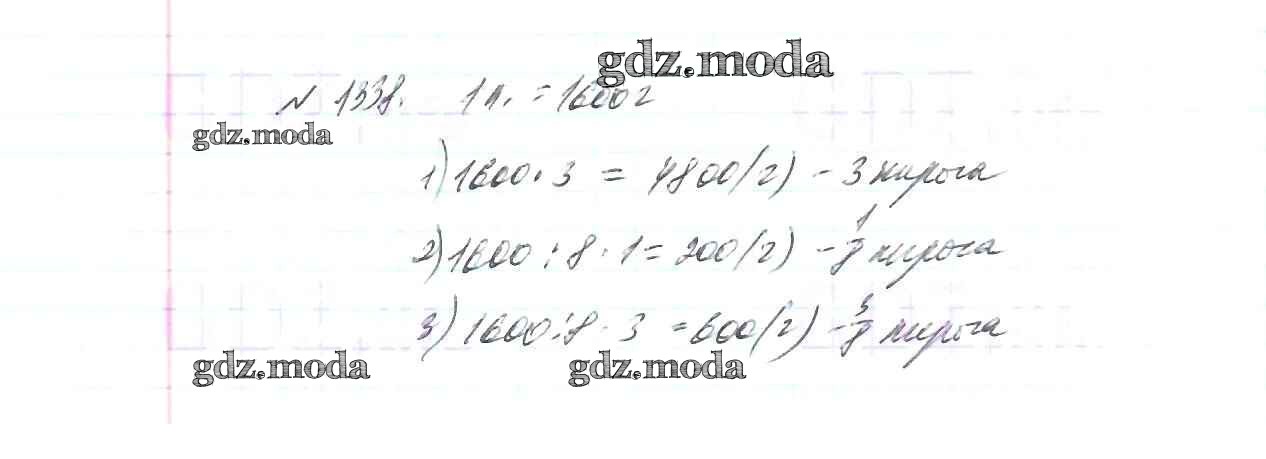 gdz.moda
№ 1338. 1 п. = 1600 г
gdz.moda
1) 1600 · 3 = 4800 (г) – 3 пирога
2) 1600 : 8 · 1 = 200 (г) – 1/8 пирога
3) 1600 : 8 · 3 = 600 (г) – 3/8 пирога
gdz.moda gdz.moda